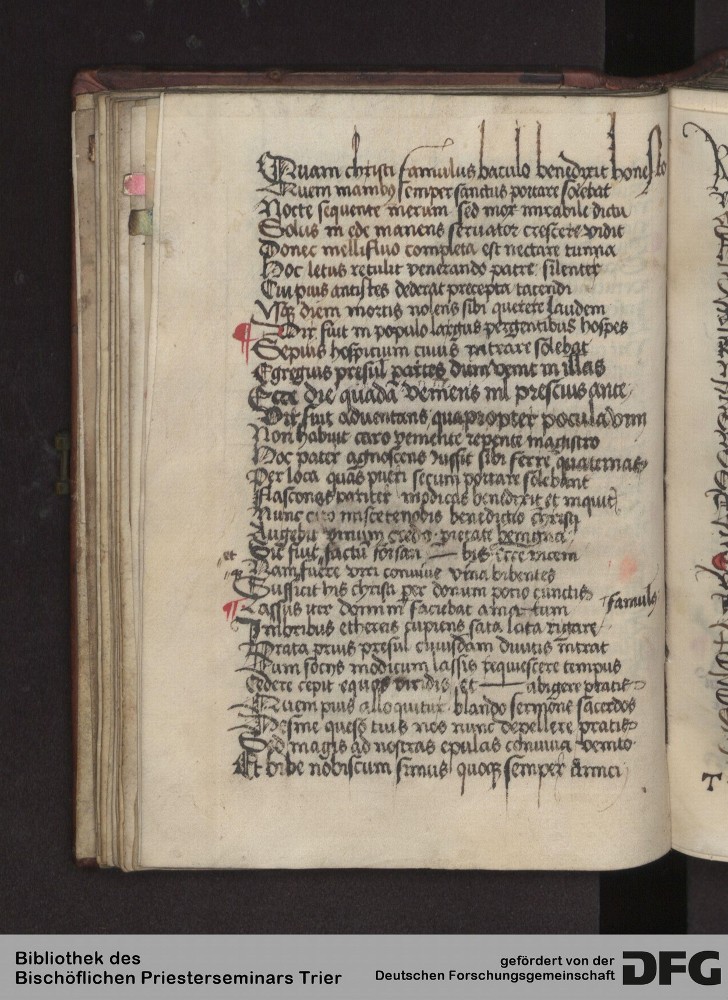 Quam christi famulus baculo benedixit honesto
Quem manibus semper sanctus portare solebat
Nocte sequente merum sed mox mirabile dictu
Solus in ede manens seruator crescere vidit
Donec mellifluo completa est nectare tunna
Hoc letus retulit venerando patre silenter
Cui pius antistes dederat precepta tacendi
Usqz diem mortis nolens sibi querere laudem
Dix fuit in populo largus pergentibus hospes
Sepius hospicium cuius intrare solebat
Egregius presul partes dum venit in illas
Ecce die quadā veniens nil prescius ante
fuit aduentans quapropter pocula vini
Non habuit caro veniente repente magistro
Hoc pater agnoscens iussit sibi ferre quaternas
Per loca quas pueri secum portare solebant
Flascones pariter modicas benedixit et inquit
Nunc cito miscete nobis benedictio christi
Augebit vinum credo pietate benigna
et Sic fuit factū forsan — bis ecce vicem
Nam fuere viri conuiue vina bibentes
Sufficit his christi per donum potio cunctis
Lassus iter domini faciebat tum famulus
Imbribus ethereis cupiens sata lata rigare
Prata prius presul cuiusdam diuitis intrat
Dum socijs modicum lassis requiescere tempus
Cedere cepit equos viridis et — abigere pratis
Quem pius alloquitur blando sermone sacerdos
Desine queso tuis nos nunc depellere pratis
Sed magis ad nostras epulas conuiua venito
Et bibe nobiscum simus quoqz semper amici
Bibliothek des
Bischöflichen Priesterseminars Trier
gefördert von der
Deutschen Forschungsgemeinschaft DFG